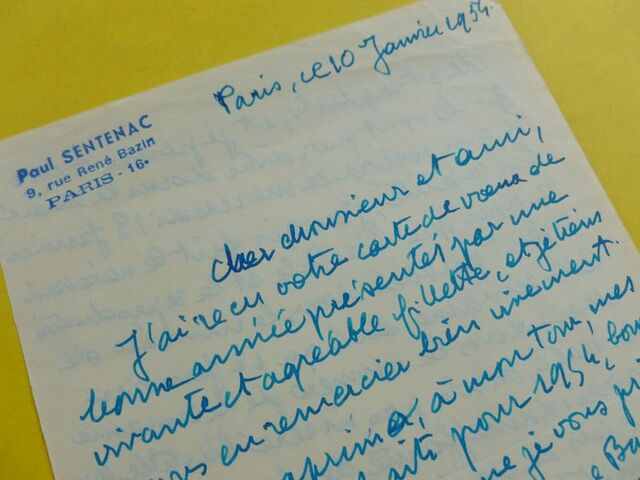 Paris, le 10 Janvier 1954.
Paul SENTENAC
9, rue René Bazin
PARIS - 16e
Cher Monsieur et ami,
J'ai reçu votre carte de vœux de
bonne année présentés par une
vivante et agréable fillette, et je tiens
en remercier bien vivement.
à mon tour, mes
pour 1954,
je vous